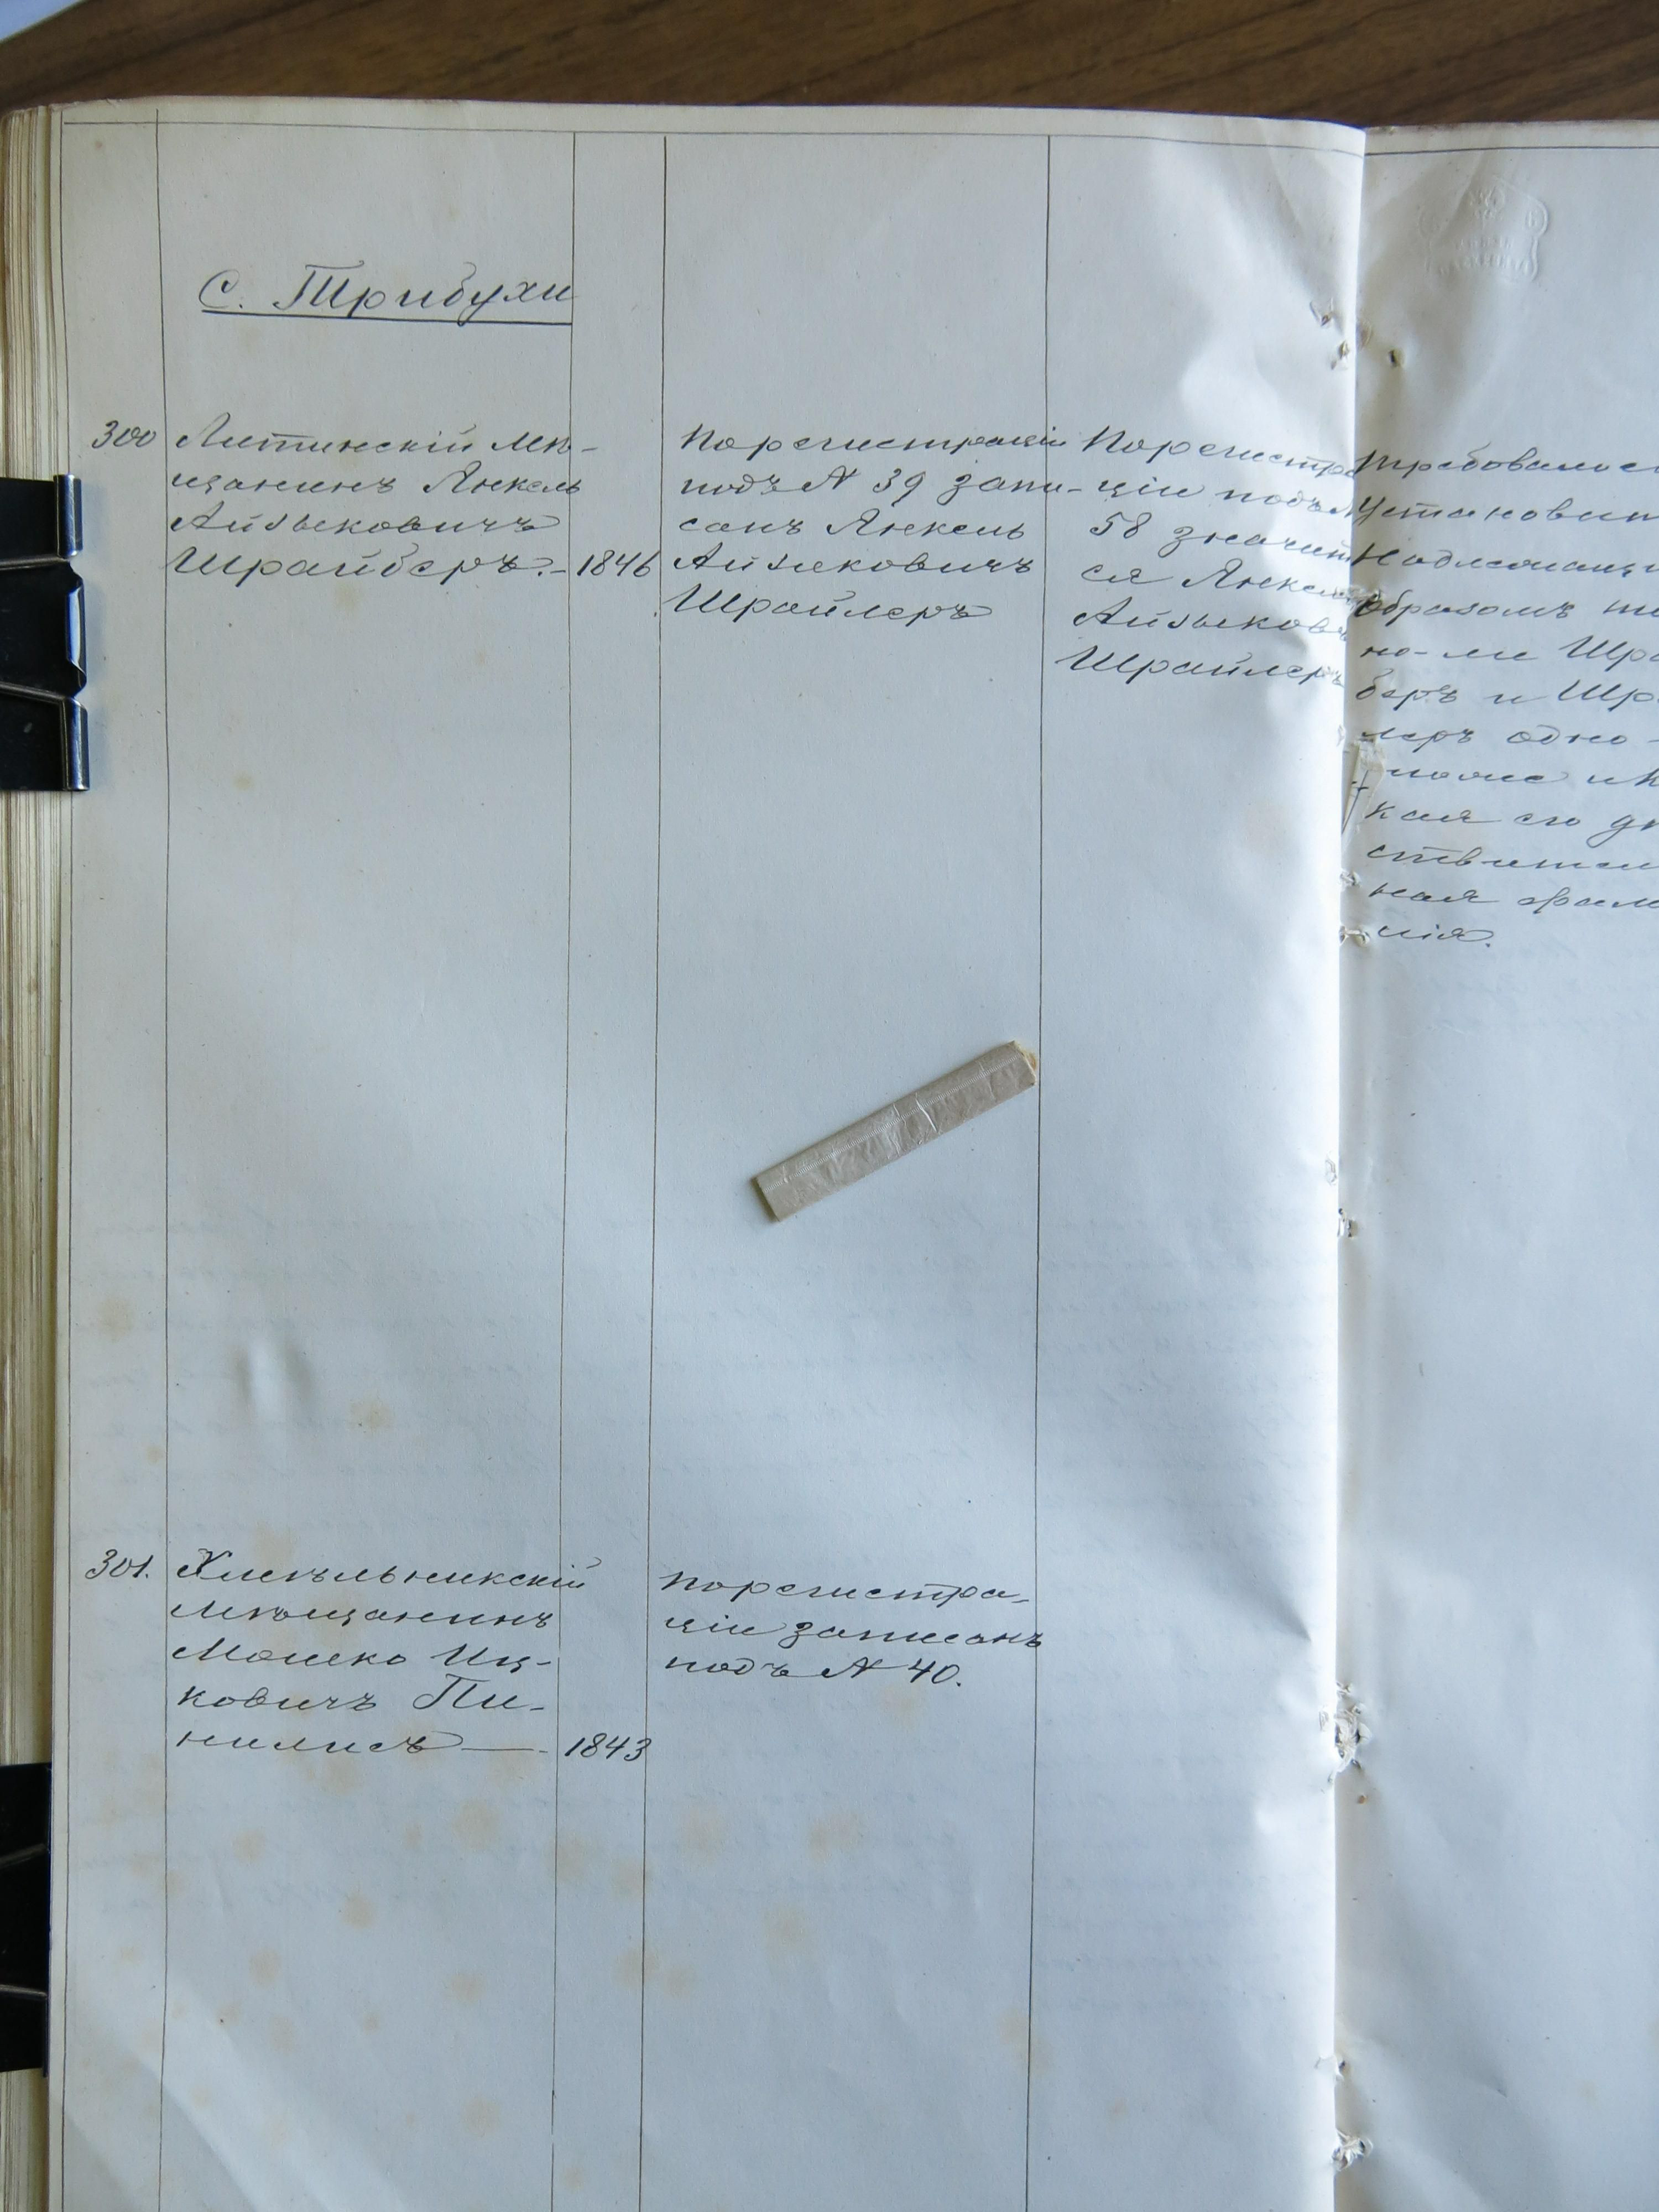 С. Трибухи
300
Литинскій мѣ-
щанинъ Янкель
Айзыковичъ
Шрайберъ. - 1846
По регистраціи
подъ № 39 запи-
санъ Янкель
Айзиковичъ
Шрайлеръ
По регистра
ціи подъ №
58 значит
ся Янкель
Айзыков
Шрайлеръ
Требовалос
установит
надлежащи
образомъ то
но-ли Шра
беръ и Шра
леръ одно-
и кака
кая его дѣ
ствител
ная фами
лія.
301.
Хмѣльникскій
мѣщанинъ
Мошко Иц-
ковичъ Пи-
нилисъ — 1843
По регистра-
ціи записанъ
подъ № 40.